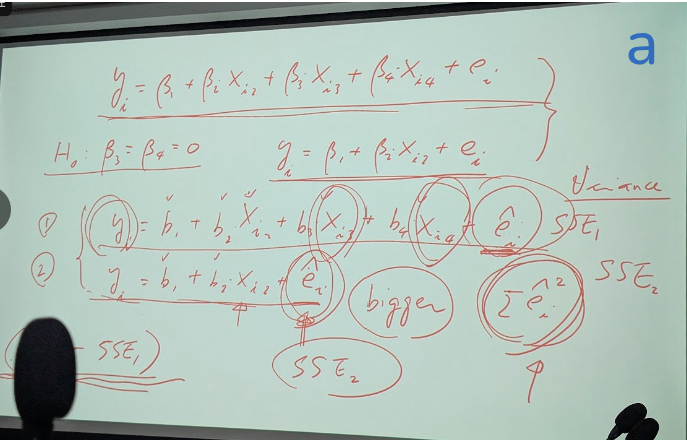 a
y_i = β_1 + β_2 X_i2 + β_3 X_i3 + β_4 X_i4 + e_i
H_0 : β_3 = β_4 = 0
y_i = β_1 + β_2 X_i2 + e_i
Variance
① y_i = b_1 + b_2 X_i2 + b_3 X_i3 + b_4 X_i4 + ê_i SSE_1
② y_i = b_1 + b_2 X_i2 + ê_i
bigger
Σ ê_i^2
SSE_2
- SSE_1)
SSE_2